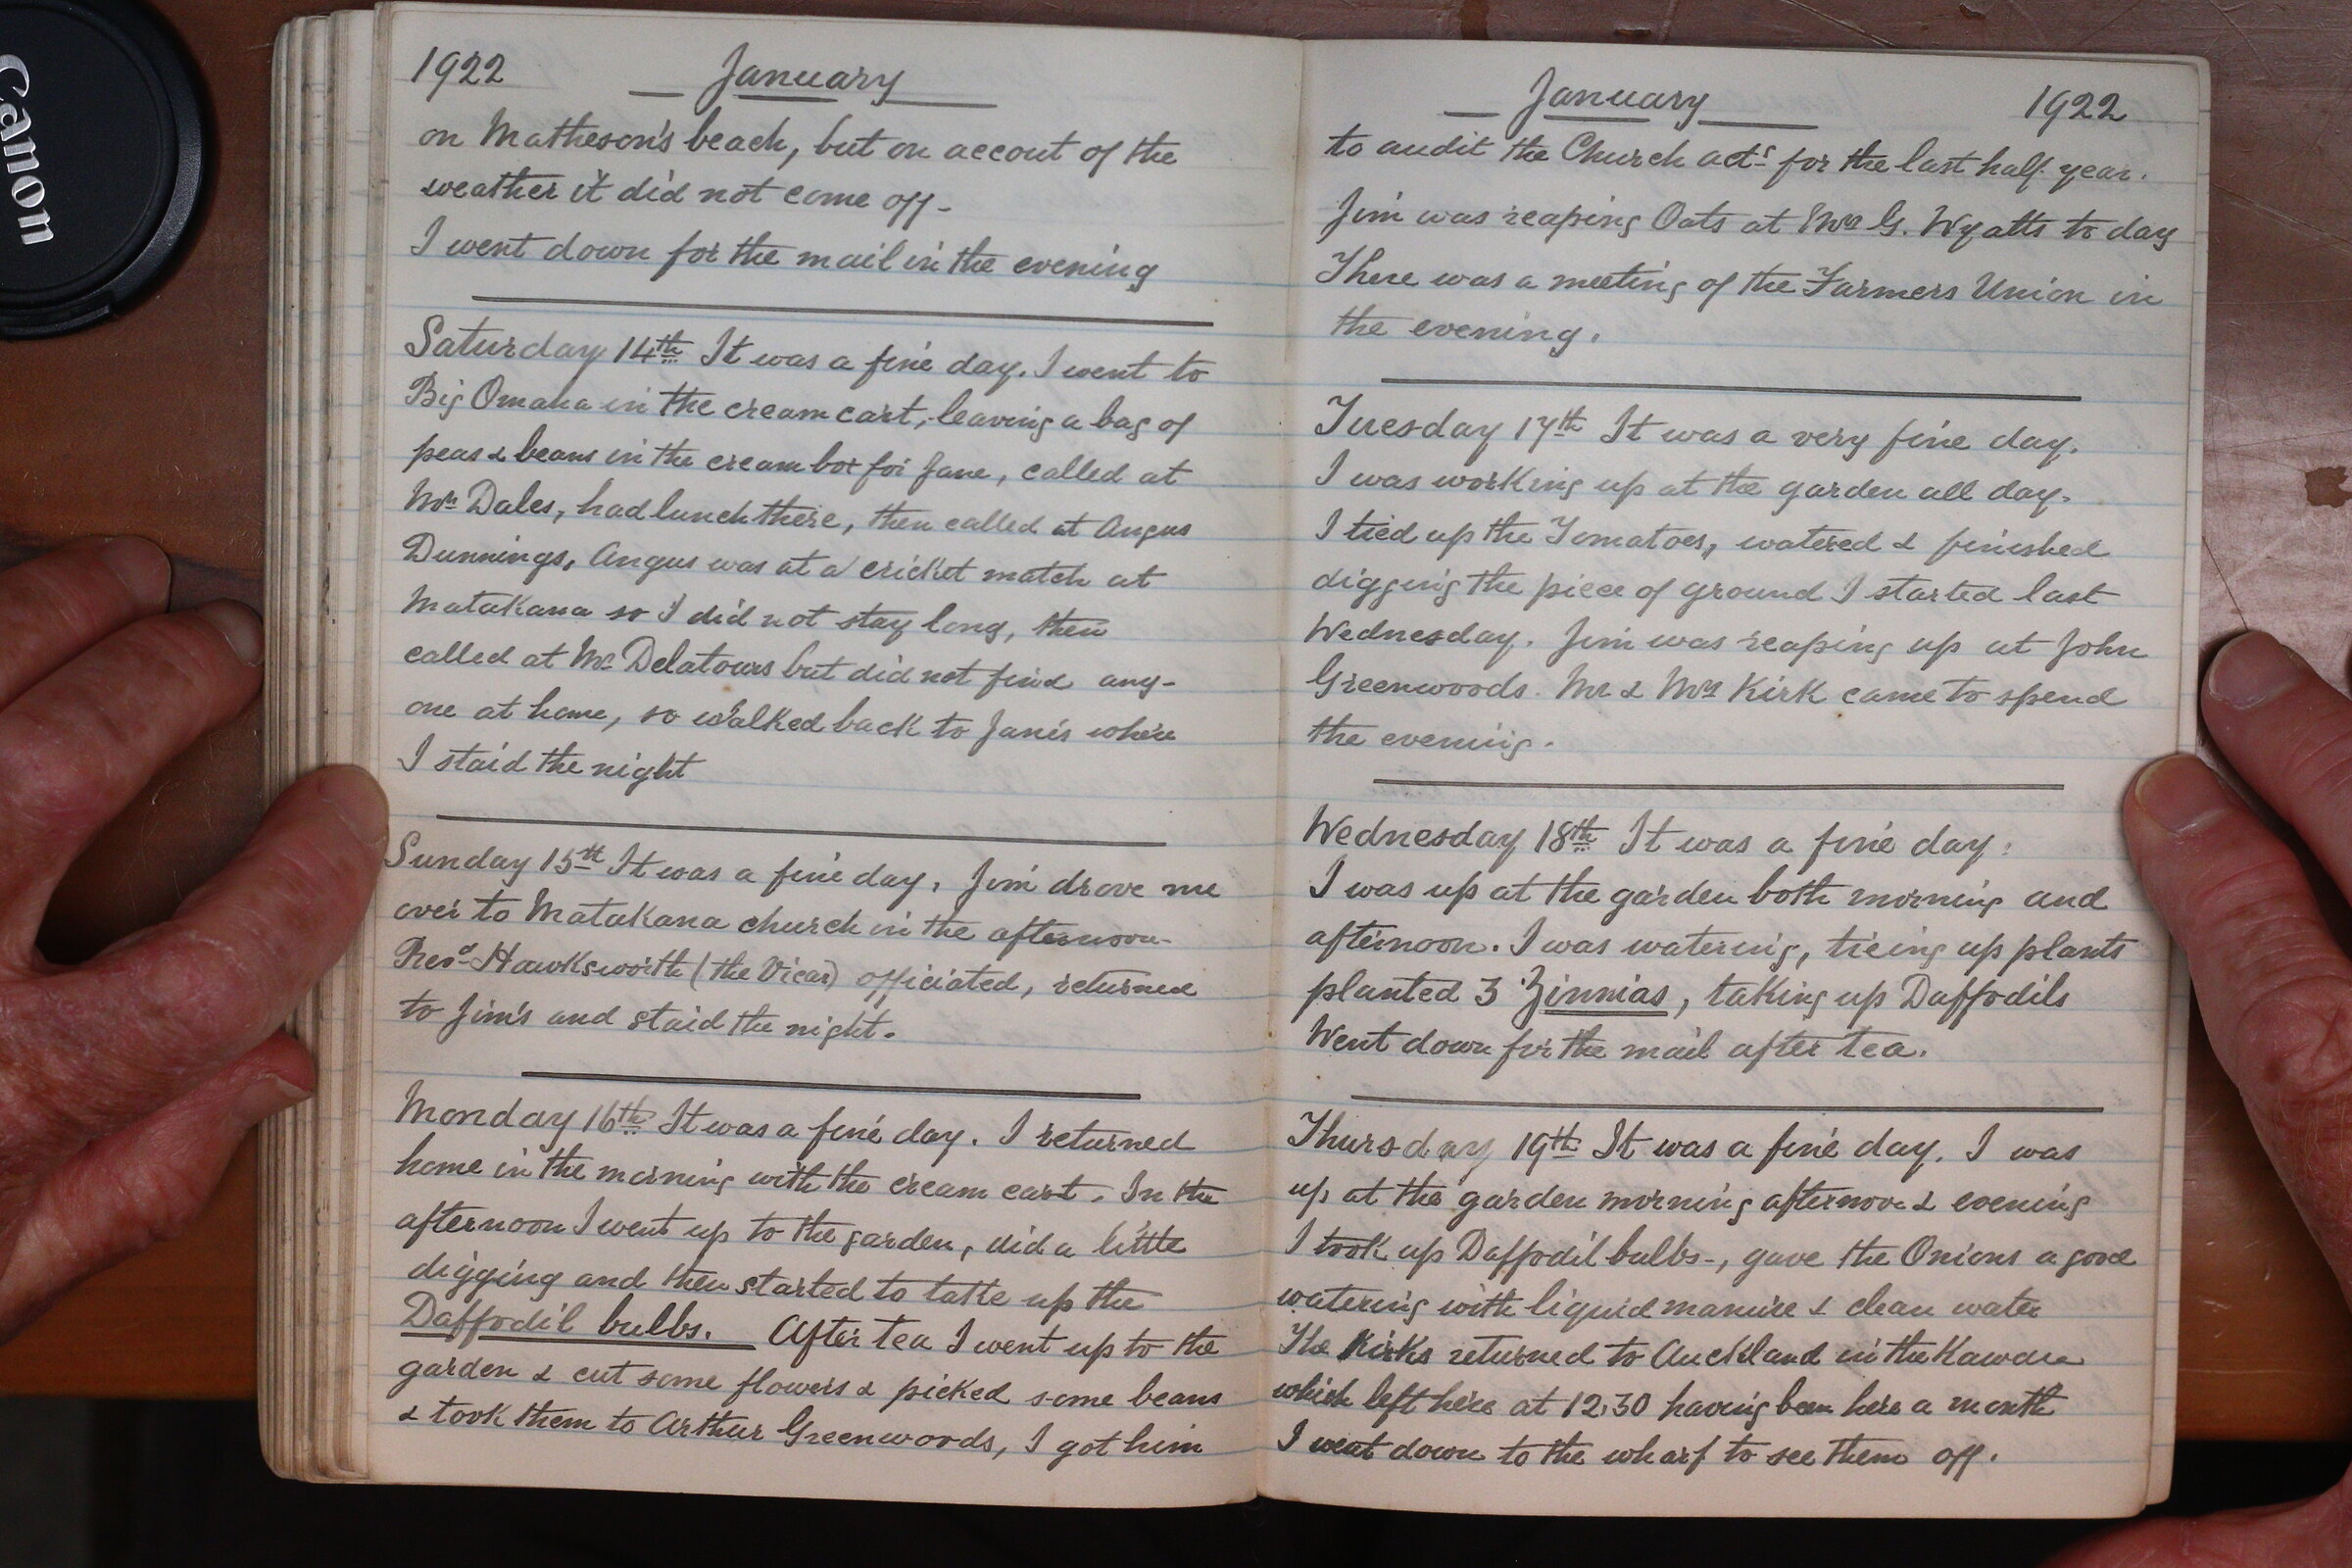 Canon
1922 — January
on Matheson's beach, but on accout of the
weather it did not come off -
I went down for the mail in the evening
Saturday 14th It was a fine day. I went to
Big Omaha in the cream cart, leaving a bag of
peas & beans in the cream box for Jane, called at
Mrs Dales, had lunch there, then called at Angus
Dunnings, Angus was at a cricket match at
Matakana so I did not stay long, then
called at Mr Delatours but did not find any-
one at home, so walked back to Janes where
I staid the night
Sunday 15th It was a fine day, Jim drove me
over to Matakana church in the afternoon -
Revd Hawksworth (the Vicar) officiated, returned
to Jim's and staid the night.
Monday 16th It was a fine day. I returned
home in the morning with the cream cart. In the
afternoon I went up to the garden, did a little
digging and then started to take up the
Daffodil bulbs. After tea I went up to the
garden & cut some flowers & picked some beans
& took them to Arthur Greenwoods, I got him
— January 1922
to audit the Church acts for the last half year.
Jim was reaping Oats at Mrs G. Wyatts to day
There was a meeting of the Farmers Union in
the evening.
Tuesday 17th It was a very fine day.
I was working up at the garden all day.
I tied up the Tomatoes, watered & finished
digging the piece of ground I started last
Wednesday. Jim was reaping up at John
Greenwoods. Mr & Mrs Kirk came to spend
the evening.
Wednesday 18th It was a fine day.
I was up at the garden both morning and
afternoon. I was watering, tieing up plants
planted 3 Zinnias, taking up Daffodils
Went down for the mail after tea.
Thursday 19th It was a fine day. I was
up at the garden morning afternoon & evening
I took up Daffodil bulbs -, gave the Onions a good
watering with liquid manure & clean water
The Kirks returned to Auckland in the Kawau
which left here at 12.30 having been here a month
I went down to the wharf to see them off.